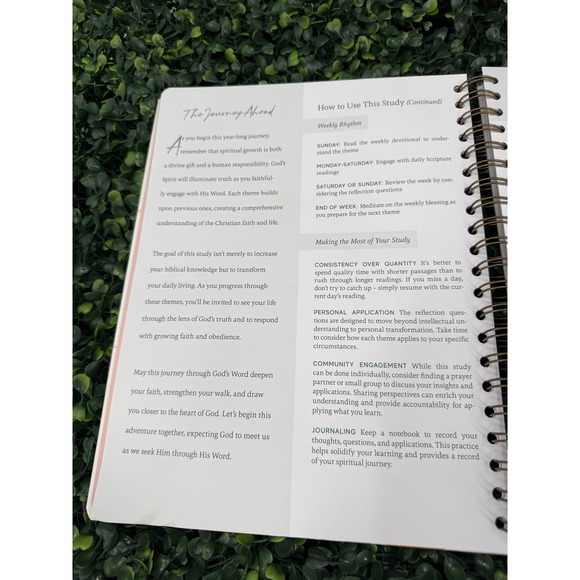 The Journey Ahead
As you begin this year-long journey,
remember that spiritual growth is both
a divine gift and a human responsibility. God's
Spirit will illuminate truth as you faithful-
ly engage with His Word. Each theme builds
upon previous ones, creating a comprehensive
understanding of the Christian faith and life.
The goal of this study isn't merely to increase
your biblical knowledge but to transform
your daily living. As you progress through
these themes, you'll be invited to see your life
through the lens of God's truth and to respond
with growing faith and obedience.
May this journey through God's Word deepen
your faith, strengthen your walk, and draw
you closer to the heart of God. Let's begin this
adventure together, expecting God to meet us
as we seek Him through His Word.
How to Use This Study (Continued)
Weekly Rhythm
SUNDAY: Read the weekly devotional to under-
stand the theme
MONDAY-SATURDAY: Engage with daily Scripture
readings
SATURDAY OR SUNDAY: Review the week by con-
sidering the reflection questions
END OF WEEK: Meditate on the weekly blessing as
you prepare for the next theme
Making the Most of Your Study
CONSISTENCY OVER QUANTITY It's better to
spend quality time with shorter passages than to
rush through longer readings. If you miss a day,
don't try to catch up – simply resume with the cur-
rent day's reading.
PERSONAL APPLICATION The reflection ques-
tions are designed to move beyond intellectual un-
derstanding to personal transformation. Take time
to consider how each theme applies to your specific
circumstances.
COMMUNITY ENGAGEMENT While this study
can be done individually, consider finding a prayer
partner or small group to discuss your insights and
applications. Sharing perspectives can enrich your
understanding and provide accountability for ap-
plying what you learn.
JOURNALING Keep a notebook to record your
thoughts, questions, and applications. This practice
helps solidify your learning and provides a record
of your spiritual journey.